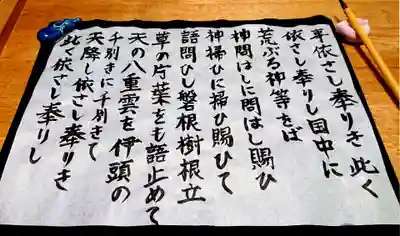 事依さし奉りき此く
依さし奉りし国中に
荒ぶる神等をば
神問はしに問はし賜ひ
神掃ひに掃ひ賜ひて
語問ひし磐根樹根立
草の片葉をも語止めて
天の八重雲を伊頭の
千別きに千別きて
天降し依さし奉りき
此く依さし奉りし